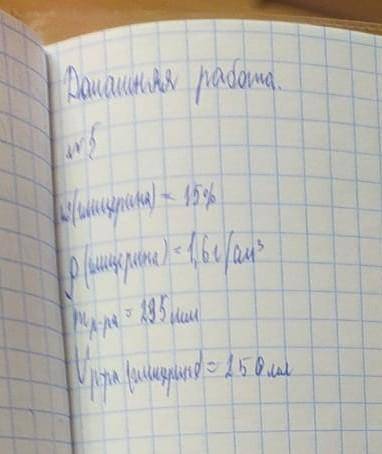 Домашняя работа.
№5
ω(глицерина) = 15%
ρ(глицерина) = 1,6 г/см³
m р-ра = 295 мл
V р-ра (глицерин) = 250 мл